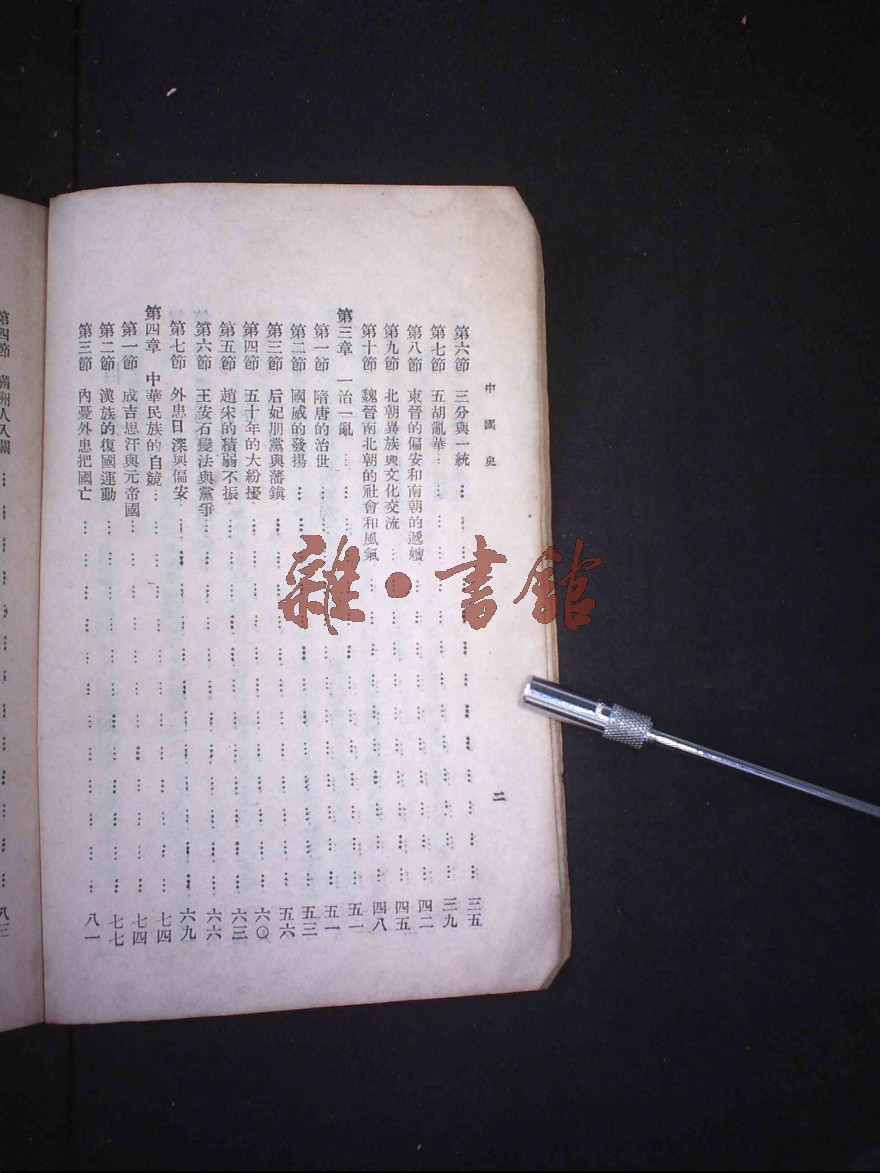 中國史
二
第六節 三分與一統 … … … … … … … … … … … … 三五
第七節 五胡亂華 … … … … … … … … … … … … 三九
第八節 東晉的偏安和南朝的遞嬗 … … … … … … … … … … 四二
第九節 北朝異族與文化交流 … … … … … … … … … … 四五
第十節 魏晉南北朝的社會和風氣 … … … … … … … … … … 四八
第三章 一治一亂 … … … … … … … … … … … … 五一
第一節 隋唐的治世 … … … … … … … … … … … … 五一
第二節 國威的發揚 … … … … … … … … … … … … 五三
第三節 后妃朋黨與藩鎮 … … … … … … … … … … … 五六
第四節 五十年的大紛擾 … … … … … … … … … … … 六〇
第五節 趙宋的積弱不振 … … … … … … … … … … … 六三
第六節 王安石變法與黨爭 … … … … … … … … … … … 六六
第七節 外患日深與偏安 … … … … … … … … … … … 六九
第四章 中華民族的自競 … … … … … … … … … … … 七四
第一節 成吉思汗與元帝國 … … … … … … … … … … … 七四
第二節 漢族的復國運動 … … … … … … … … … … … 七七
第三節 內憂外患把國亡 … … … … … … … … … … … 八一
第四節 滿洲人入關 … … … … … … … … … … … … 八三
雜·書館